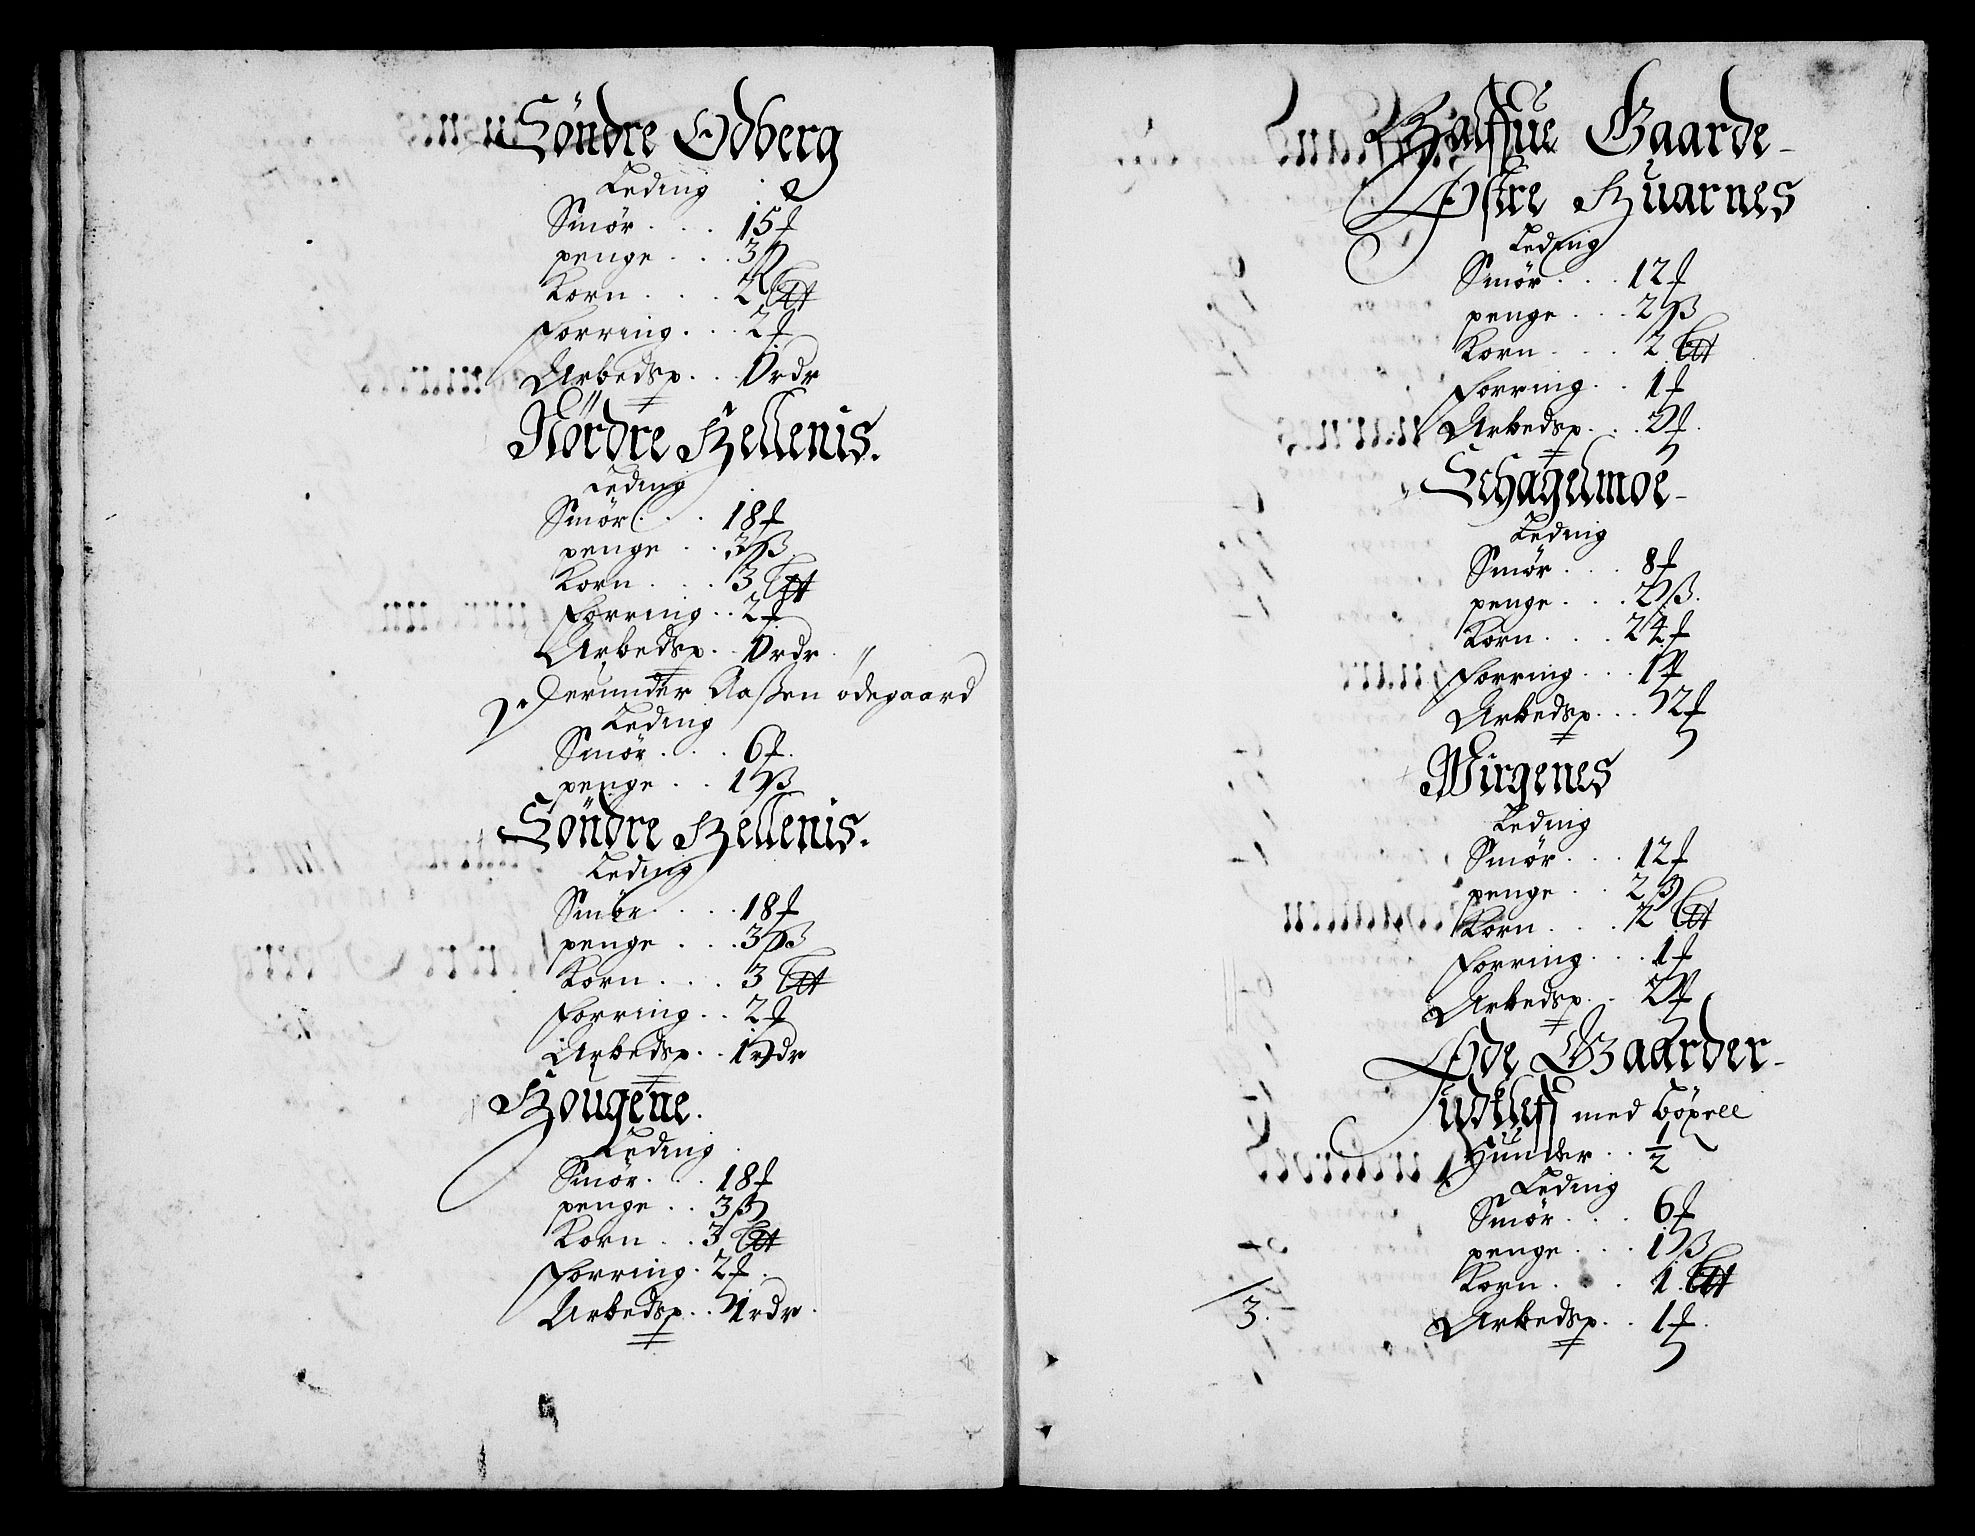 Söndre Odberg
Leding
Smör . . . 15 ℔
penge . . . 3 ß
Korn . . . 2 Sett
Forring . . . 2 ℔
Arbedsp. . . 1 rdr
Nördre Hellenis.
Leding
Smör . . . 18 ℔
penge . . . 3 ß
Korn . . . 3 Sett
Forring . . 2 ℔
Arbedsp. . 1 rdr
Derunder Aassen ödegaard
Leding
Smör . . . 6 ℔
penge . . 1 ß
Söndre Hellenis.
Leding
Smör . . . . 18 ℔
penge . . . 3 ß
Korn . . . 3 Sett
Forring . . 2 ℔
Arbedsp. . . 1 rdr
Hougene.
Leding
Smör . . . 18 ℔
penge . . 3 ß
Korn . . 3 Sett
Forring . 2 ℔
Arbedsp. . 1 rdr
Halfue Gaarde
Östre Huarnes
Leding
Smör . . . 12 ℔
penge . . . 2 ß
Korn . . . 2 Sett
Forring . . 1 ℔
Arbedsp. . . ℔
Schagelmoe
Leding
Smör . . . 8 ℔
penge . . . ß
Korn . . . 24 ℔
Forring . . . 1 ℔
Arbedsp. . . ℔
Wirgenes
Leding
Smör . . . 12 ℔
penge . . 2 ß
Korn . . . 2 Sett
Forring . . . 1 ℔
Arbedsp. . ℔
Öde Gaarder
Judkleff med Böxell
Hünder . . 1/2
Leding
Smör . . . 6 ℔
penge . . . 1 ß
Korn . . . 1 Sett
Arbedsp. . . 1 ℔
3.